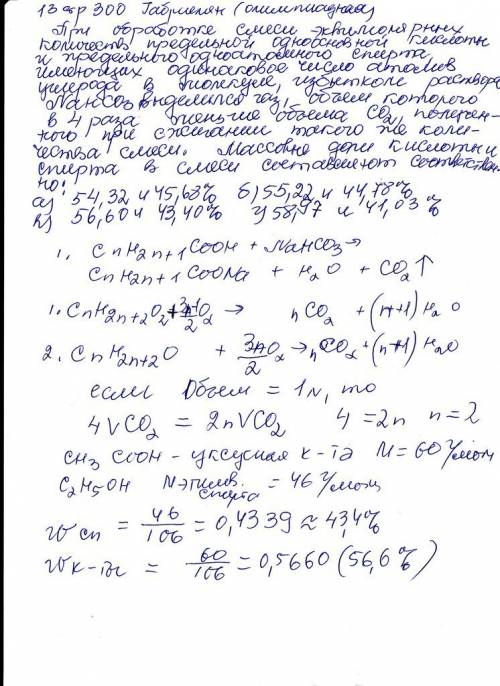 13 стр 300 Габриелян (олимпиадная)
При обработке смеси эквимолярных
количеств предельной одноосновной кислоты
и предельного одноатомного спирта,
имеющих одинаковое число атомов
углерода в молекуле, избытком раствора
NaHCO3 выделился газ, объем которого
в 4 раза меньше объема CO2, получен-
ного при сжигании такого же коли-
чества смеси. Массовые доли кислоты и
спирта в смеси составляют соответствен-
но:
а) 54,32 и 45,68% б) 55,22 и 44,78%
в) 56,60 и 43,40% г) 58,97 и 41,03%
1. CnH2n+1COOH + NaHCO3 →
CnH2n+1COONa + H2O + CO2↑
1. CnH2n+2O2 + O2 → nCO2 + (n+1)H2O
2. CnH2n+2O + 3nO2/2 → nCO2 + (n+1)H2O
если Объем = 1, то
4VCO2 = 2nVCO2 4=2n n=2
CH3COOH - уксусная к-та M=60 г/моль
C2H5OH M этилов. спирта = 46 г/моль
w сп = 46/106 = 0,4339 ≈ 43,4%
w к-ты = 60/106 = 0,5660 (56,6%)